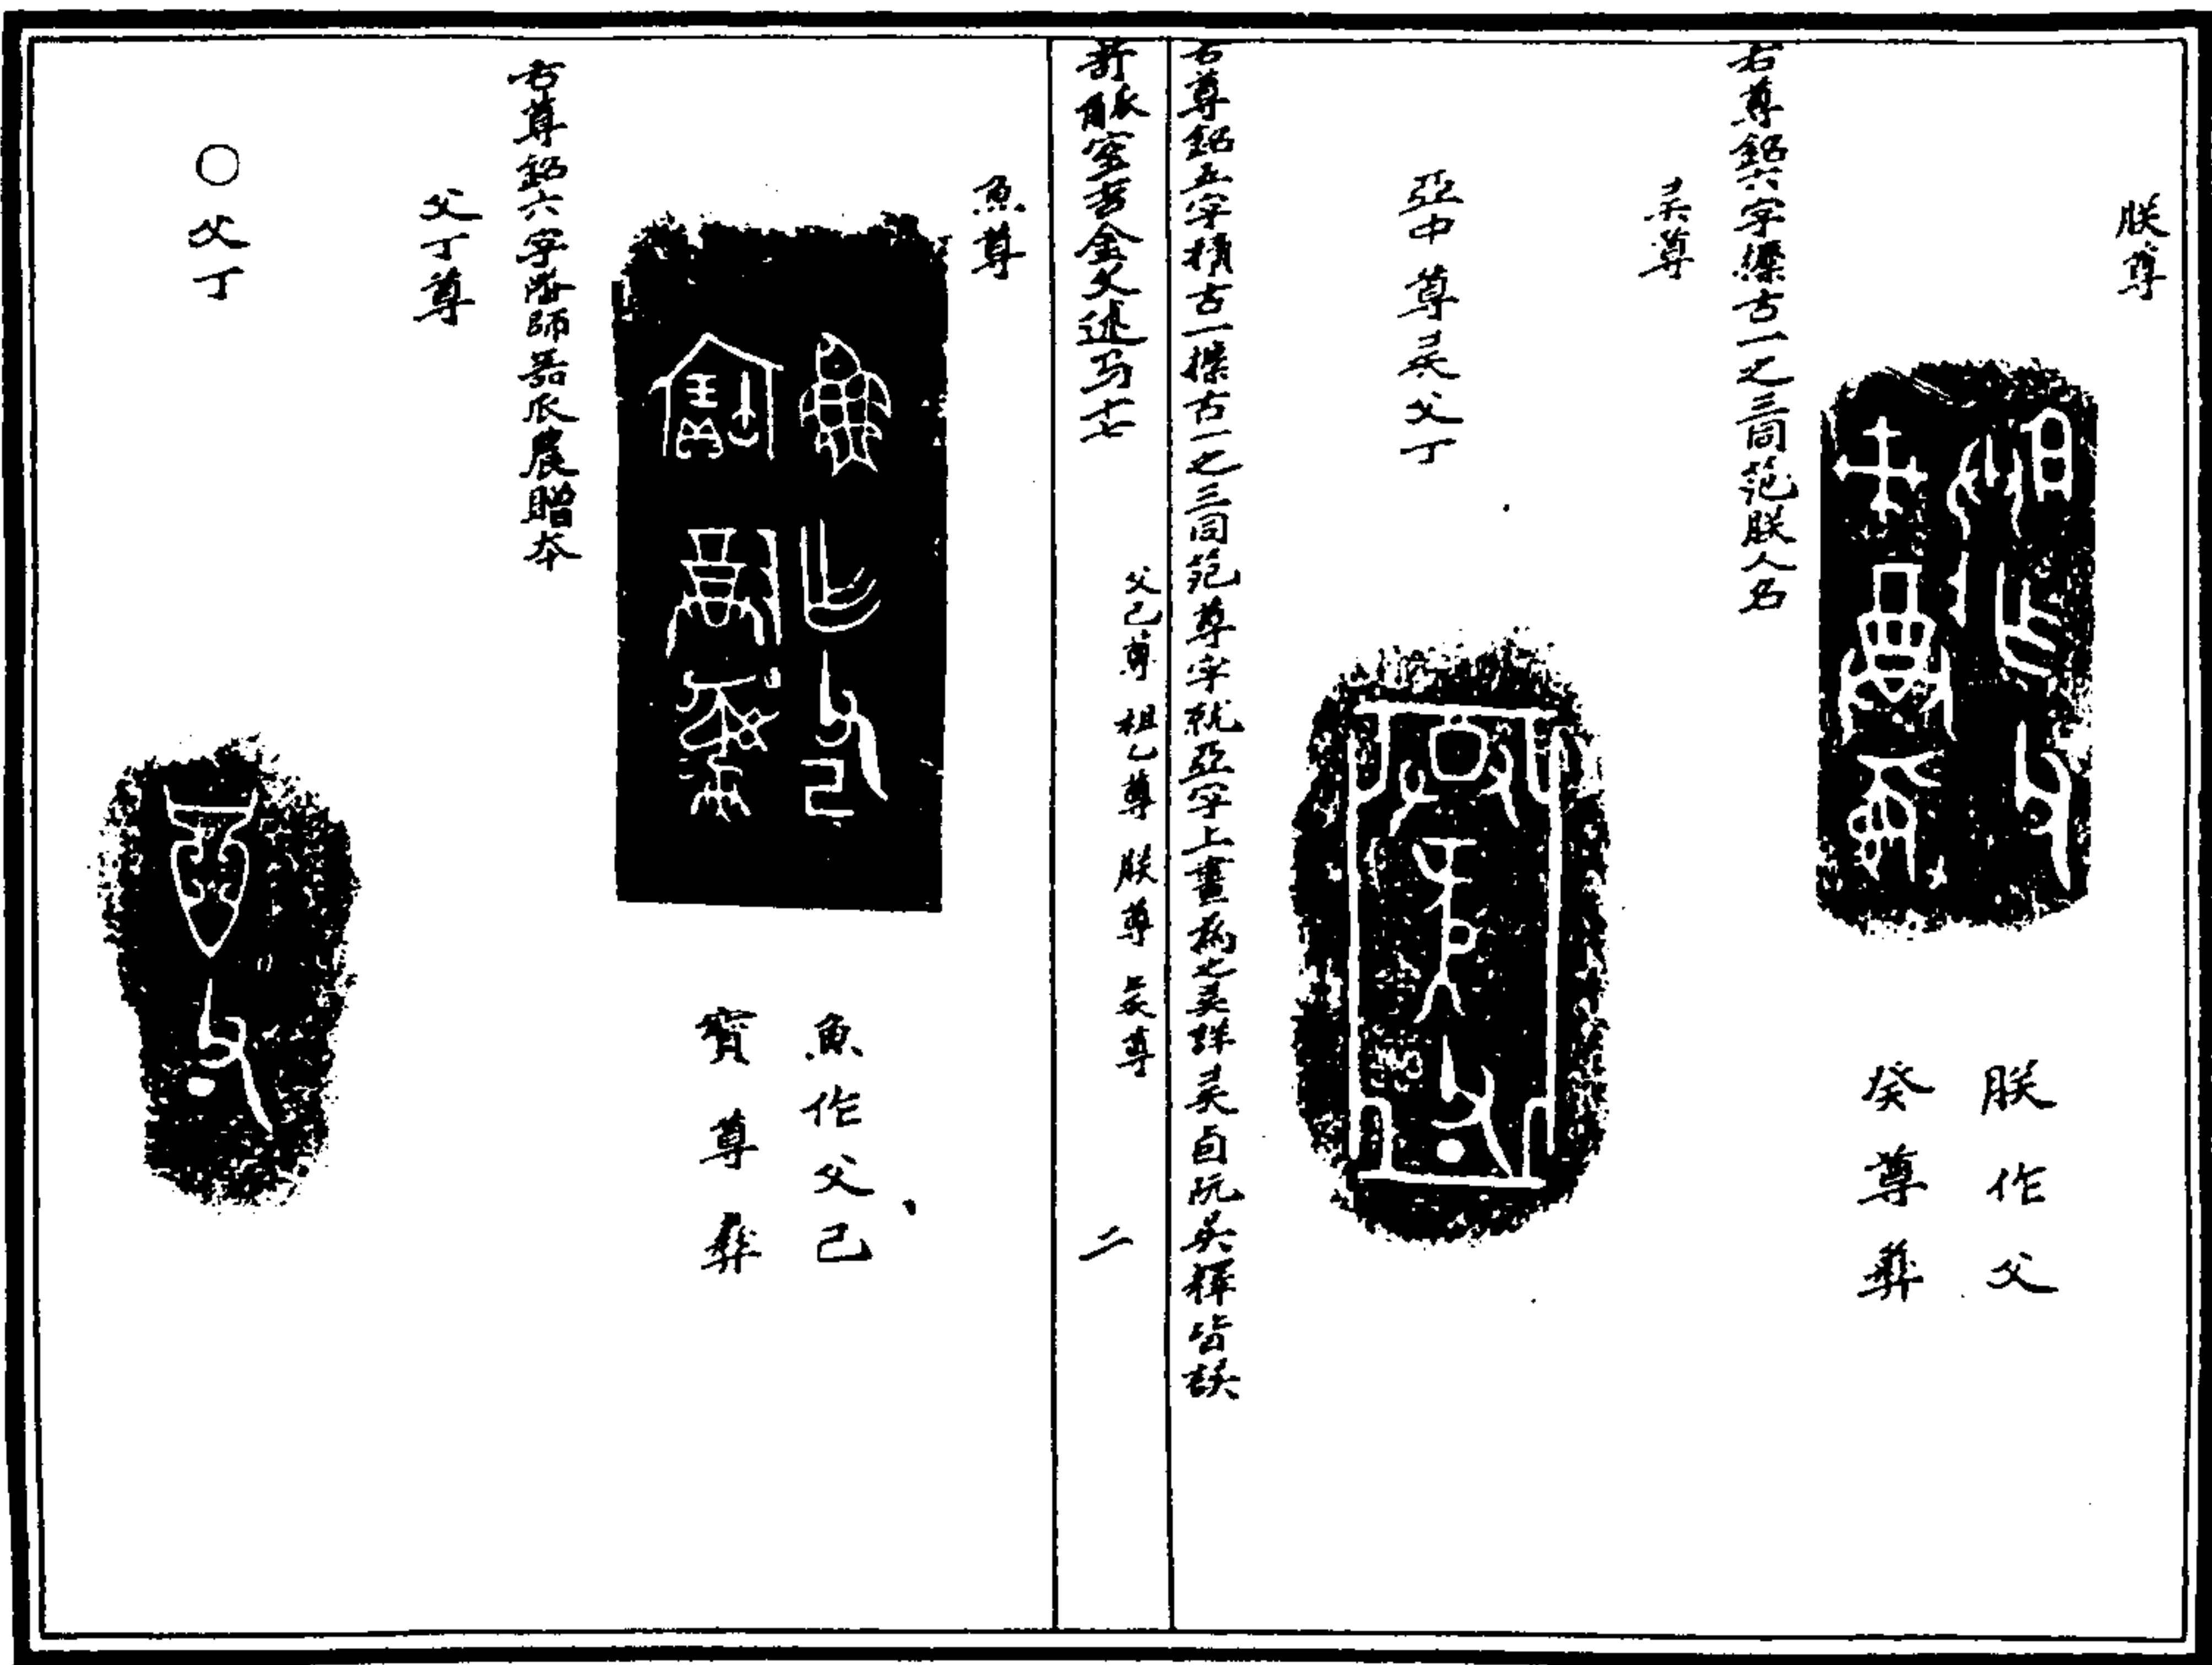 朕尊
朕作父
癸尊彝
右尊銘六字攈古一之三同范朕人名
㠱尊
亞中尊㠱父丁
右尊銘五字積古一攈古一之三同范尊字就亞字上畫為之㠱詳㠱卣阮吳釋皆誤
古金文述
父己尊 祖乙尊 朕尊 㠱尊
二
魚尊
魚作父己
寶尊彝
右尊銘六字濰師器辰贈本
父丁尊
○父丁